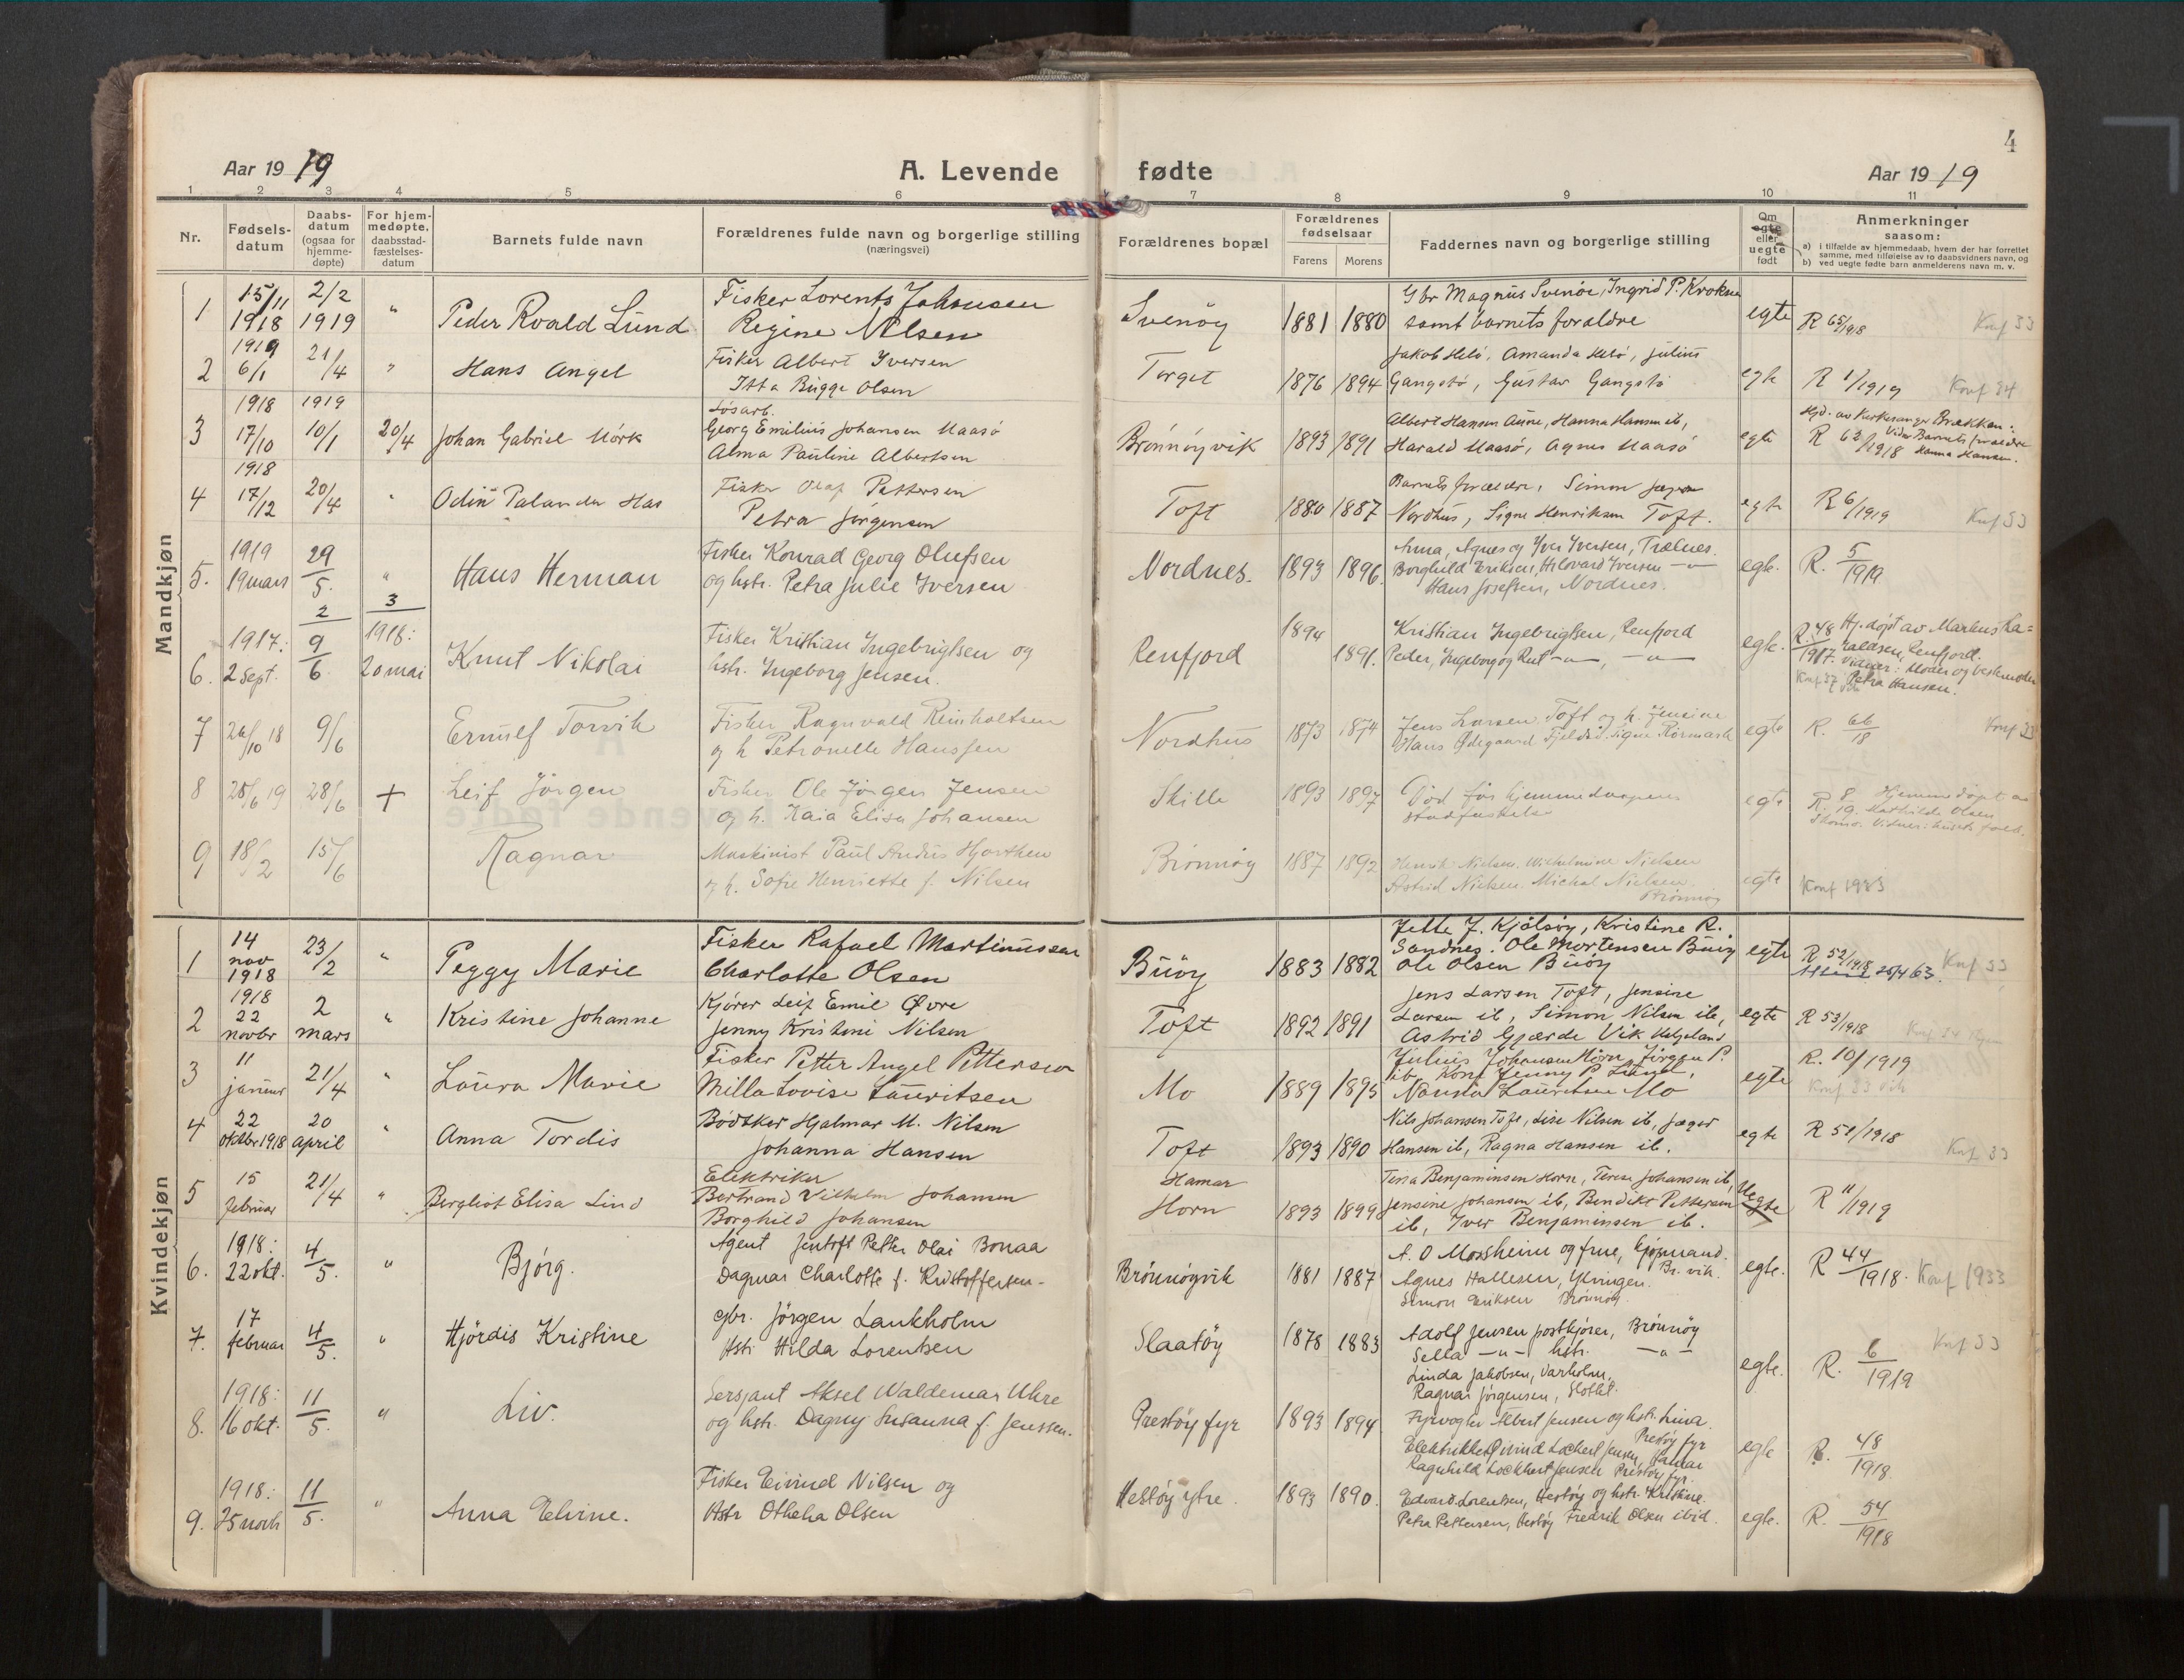 4
Aar 1919
A. Levende fødte
Aar 1919
1 2 3 4 5 6 7 8 9 10 11
Nr.
Fødsels-
datum
Daabs-
datum
(ogsaa for
hjemme-
døpte)
For hjem-
medøpte,
daabsstad-
fæstelses-
datum
Barnets fulde navn
Forældrenes fulde navn og borgerlige stilling
(næringsvei)
Forældrenes bopæl
Forældrenes
fødselsaar
Farens Morens
Faddernes navn og borgerlige stilling
Om
egte
eller
uegte
født
Anmerkninger
saasom:
a) i tilfælde av hjemmedaab, hvem der har forrettet
samme, med tilføielse av to daabsvidners navn, og
b) ved uegte fødte barn anmelderens navn m. v.
Mandkjøn
1 15/11 1918 2/2 1919 " Peder Roald Lund
Fisker Lorents Johansen
Regine Nilsen
Svenøy 1881 1880
Gbr Magnus Svenøe, Ingrid P.
samt barnets foraldre
egte R 65/1918 Knf 33
2 1919 6/1 21/4 " Hans Angel
Fisker Albert Iversen
Bugge Olsen
Torget 1876 1894
Jakob Helø, Amanda Helø, Julius
Gangstø, Gustav Gangstø
egte R 1/1919 Konf 34
3 1918 17/10 1919 10/1 20/4 Johan Gabriel Mørk
Løsarb.
Georg Emilius Johansen Maasø
Alma Pauline Albertsen
Brønnøyvik 1893 1891
Albert Hansen Aune, Hanna Hansen ib,
Harald Maasø, Agnes Maasø
egte Hjd. av Kirkesanger Brækkan:
R 62/1918 Vidner Barnets forældre
Hanna Hansen.
4 1918 17/12 20/4 " Odin Palander Has
Fisker Olaf Pettersen
Petra Jørgensen
Toft 1880 1887
Barnets forældre, Simon
Nordhus, Signe Henriksen Toft.
egte R 6/1919 Knf 33
5. 1919 19 mars 29/5. " Hans Herman
Fisker Konrad Georg Olufsen
og hstr. Petra Julie Iversen
Nordnes. 1893 1896.
Anna, Agnes og Iver Iversen, Trælnes.
Borghild Eriksen, Halvard Iversen —"—
Hans Josefsen, Nordnes.
egte. R. 5/1919
2 3
6. 1917: 2 Sept. 9/6 1918: 20 mai Knut Nikolai
Fisker Kristian Ingebrigtsen og
hstr. Ingeborg Jensen.
Renfjord 1894 1891.
Kristian Ingebrigtsen, Renfjord
Peder, Ingeborg og —"—, —"—
egte. R. 48/1917. Hj. døpt av Markus Ha=
raldsen, Renfjord.
Vidner: Moder og bestemoder
Petra Hansen.
Konf 37
7 26/10 18 9/6 Ernulf Torvik
Fisker Ragnvald Reinholtsen
og h Petronelle Hanssen
Nordhus 1873 1874
Jens Larsen Toft og h. Jensine
Hans Ødegaard Signe Rørmark
egte R. 66/18 Konf 33
8 25/6 19 28/6 + Leif Jørgen
Fisker Ole Jørgen Jensen
og h. Kaia Elisa Johansen
Skille 1893 1897
Død før hjemmedaapens
stadfæstelse
egte R. 8/19. Hjemmedøpt av
Mathilde Olsen
Skomo. Vidner: husets folk.
9 18/2 15/6 Ragnar
Maskinist Paul Andris Hjorthen
og h. Sofie Henriette f. Nilsen
Brønnøy 1887 1892
Henrik Nielsen. Wilhelmine Nielsen
Astrid Nielsen. Michal Nielsen.
Brønnøy
egte Konf 1933
Kvindekjøn
1 14 nov 1918 23/2 " Peggy Marie
Fisker Rafael Martinussen
Charlotte Olsen
Buøy 1883 1882
Jette J. Kjølsøy, Kristine R.
Sandnes. Ole Mortensen Buøy
Ole Olsen Buøy
egte R 52/1918 25/4 63. Knf 33
2 1918 22 novbr 2 mars " Kristine Johanne
Kjører Leif Emil Øvre
Jenny Kristine Nilsen
Toft 1892 1891
Jens Larsen Toft, Jensine
Larsen ib, Simon Nilsen ib,
Astrid Gjærde Vik Helgeland
egte R 53/1918
3 11 januar 21/4 " Laura Marie
Fisker Petter Angel Pettersen
Milla Lovise Lauritsen
Mo 1889 1895
Julius Johansen Horn, Jørgen P.
ib, Jenny P Lund,
Lauritsen Mo
egte R. 10/1919
4 22 oktbr 1918 20 april " Anna Tordis
Bødtker Hjalmar M. Nilsen
Johanna Hansen
Toft 1893 1890
Nils Johansen Toft, Lise Nilsen ib, Jæger
Hansen ib, Ragna Hansen ib.
egte R 51/1918 Knf 33
5 15 februar 21/4 " Bergliot Elisa Lind
Elektriker
Bertrand Vilhelm Johansen
Borghild Johansen
Hamar
Horn 1893 1899
Tina Benjaminsen Horn, Terese Johansen ib,
Jensine Johansen ib, Bendikt Pettersen
ib, Iver Benjaminsen ib.
Uegte R 11/1919
6. 1918: 22 okt. 4/5. " Bjørg.
Agent Jentoft Petter Olai Bonaa
Dagmar Charlotte f. Kristoffersen-
Brønnøyvik 1881 1887
A. O Mossheim og frue, kjøpmand.
Br. vik.
Agnes Hallesen,
Simon Eriksen Brønnøy.
egte. R 44/1918. Konf 1933
7. 17 februar 4/5. " Hjördis Kristine
gbr. Jörgen Lankholm
Hstr Hilda Lorentsen
Slaatøy 1878 1883
Adolf Jensen postkjører, Brønnøy
Sella —"— hstr. —"—
Linda Jakobsen, Varholm.
Ragnar Jørgensen, Slottet.
egte. R. 6/1919 Knf 33
8. 1918: 16 okt. 11/5. " Liv.
Sersjant Aksel Waldemar Uhre
og hstr. Dagny Susanna f. Jenssen.
Prestøy fyr 1893 1894
Fyrvogter Albert Jensen og hstr. Lina
Prestøy fyr
Elektriker Eivind Lockert Jensen, Hamar
Ragnhild Lockhert Jensen Prestøy fyr.
egte R. 48/1918.
9. 1918: 25 novb 11/5. " Anna Elvine.
Fisker Eivind Nilsen og
Hstr Othelia Olsen
Hestøy ytre. 1893 1890.
Edvard Lorentsen, Hestøy og hstr. Kristine.
Petra Pettersen, Hestøy Fredrik Olsen ibid.
egte. R. 54/1918